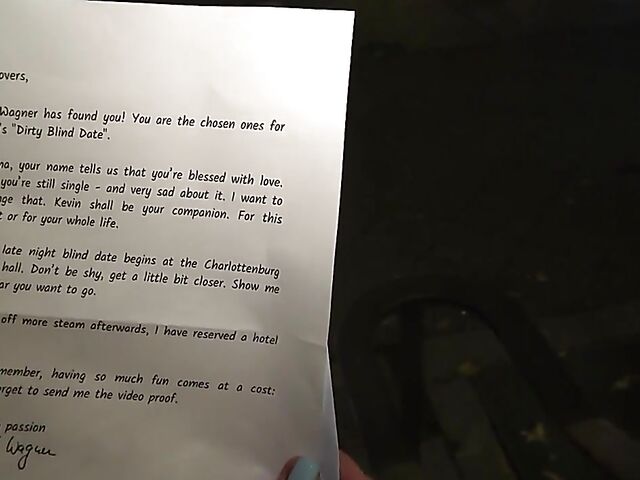 overs,
Wagner has found you! You are the chosen ones for
's "Dirty Blind Date".
na, your name tells us that you're blessed with love.
you're still single - and very sad about it. I want to
nge that. Kevin shall be your companion. For this
t or for your whole life.
late night blind date begins at the Charlottenburg
hall. Don't be shy, get a little bit closer. Show me
ar you want to go.
off more steam afterwards, I have reserved a hotel
member, having so much fun comes at a cost:
rget to send me the video proof.
passion
Wagner